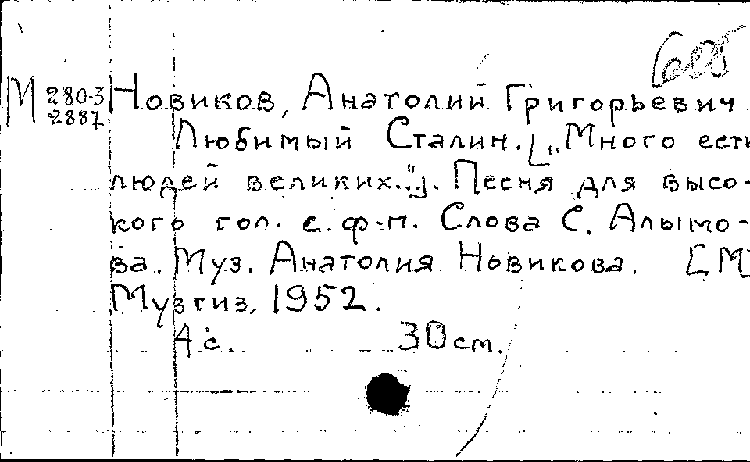 М 280-3 Новиков, Анатолий Григорьевич
2887
Любимый Сталин. [„Много есть
людей великих..."]. Песня для высо-
кого гол. с. ф-п. Слова С. Алымо-
ва. Муз. Анатолия Новикова. [М
Музгиз, 1952.
4 с. 30 см.